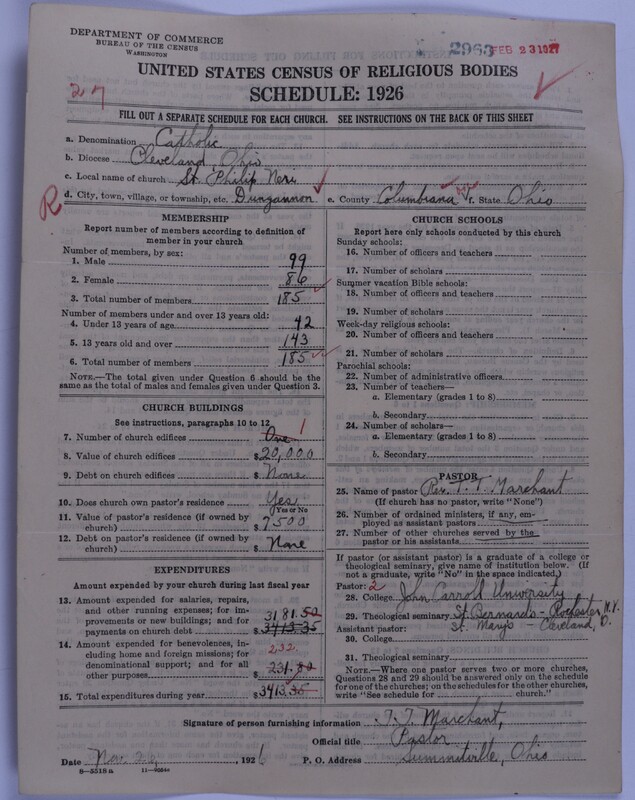 DEPARTMENT OF COMMERCE
BUREAU OF THE CENSUS
WASHINGTON
2963 FEB 23 1927
UNITED STATES CENSUS OF RELIGIOUS BODIES
SCHEDULE: 1926
27
FILL OUT A SEPARATE SCHEDULE FOR EACH CHURCH. SEE INSTRUCTIONS ON THE BACK OF THIS SHEET
a. Denomination Catholic
b. Diocese Cleveland, Ohio
c. Local name of church St. Philip Neri
R d. City, town, village, or township, etc. Dungannon e. County Columbiana f. State Ohio
MEMBERSHIP
Report number of members according to definition of
member in your church
Number of members, by sex:
1. Male 99
2. Female 86
3. Total number of members 185
Number of members under and over 13 years old:
4. Under 13 years of age 42
5. 13 years old and over 143
6. Total number of members 185
NOTE.—The total given under Question 6 should be the
same as the total of males and females given under Question 3.
CHURCH BUILDINGS
See instructions, paragraphs 10 to 12
7. Number of church edifices One 1
8. Value of church edifices $20,000
9. Debt on church edifices $None
10. Does church own pastor's residence Yes
Yes or No
11. Value of pastor's residence (if owned by
church) $7500
12. Debt on pastor's residence (if owned by
church) $None
EXPENDITURES
Amount expended by your church during last fiscal year
13. Amount expended for salaries, repairs,
and other running expenses; for im-
provements or new buildings; and for
payments on church debt 3181.50
$3413.35
14. Amount expended for benevolences, in-
cluding home and foreign missions; for
denominational support; and for all
other purposes 232.
$231.
15. Total expenditures during year $3413.35
CHURCH SCHOOLS
Report here only schools conducted by this church
Sunday schools:
16. Number of officers and teachers
17. Number of scholars
Summer vacation Bible schools:
18. Number of officers and teachers
19. Number of scholars
Week-day religious schools:
20. Number of officers and teachers
21. Number of scholars
Parochial schools:
22. Number of administrative officers
23. Number of teachers—
a. Elementary (grades 1 to 8)
b. Secondary
24. Number of scholars—
a. Elementary (grades 1 to 8)
b. Secondary
PASTOR
25. Name of pastor Rev. T. T. Marchant
(If church has no pastor, write "None")
26. Number of ordained ministers, if any, em-
ployed as assistant pastors
27. Number of other churches served by the
pastor or his assistants
If pastor (or assistant pastor) is a graduate of a college or
theological seminary, give name of institution below. (If
not a graduate, write "No" in the space indicated.)
Pastor: 2
28. College John Carroll University
29. Theological seminary St. Bernard's - Rochester, N.Y.
Assistant pastor: St. Mary's - Cleveland, O.
30. College
31. Theological seminary
NOTE.—Where one pastor serves two or more churches,
Questions 28 and 29 should be answered only on the schedule
for one of the churches; on the schedules for the other churches,
write "See schedule for church."
Signature of person furnishing information T. T. Marchant,
Official title Pastor
Date Nov. 1926 P. O. Address Summitville, Ohio
8-5518a